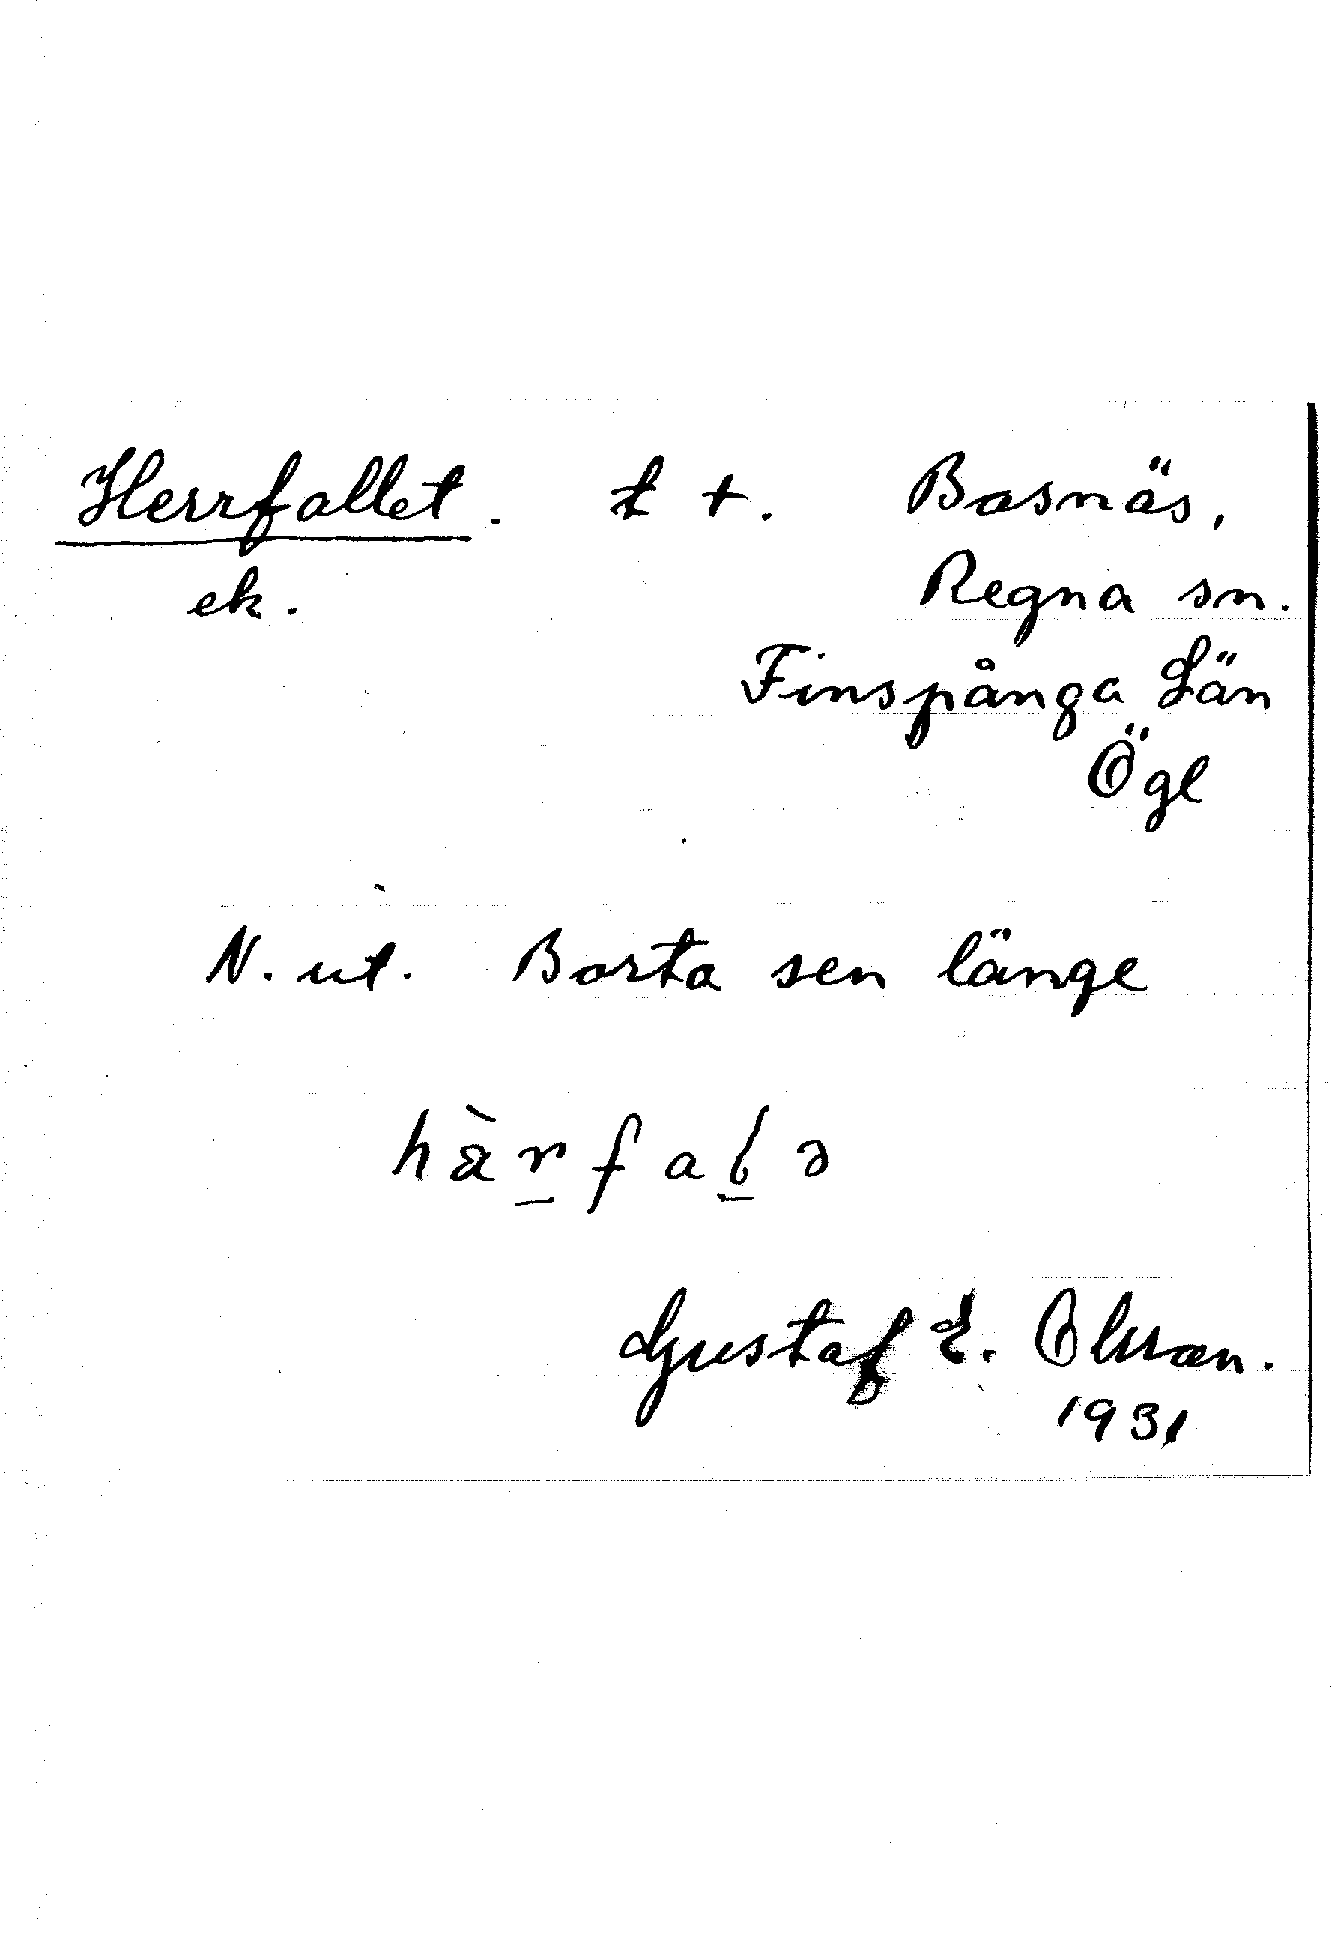 Herrfallet. t +. Basnäs,
ek. Regna sn.
Finspånga Län
Ögl
N. ut. Borta sen länge
Gustaf E. Olsson.
1931